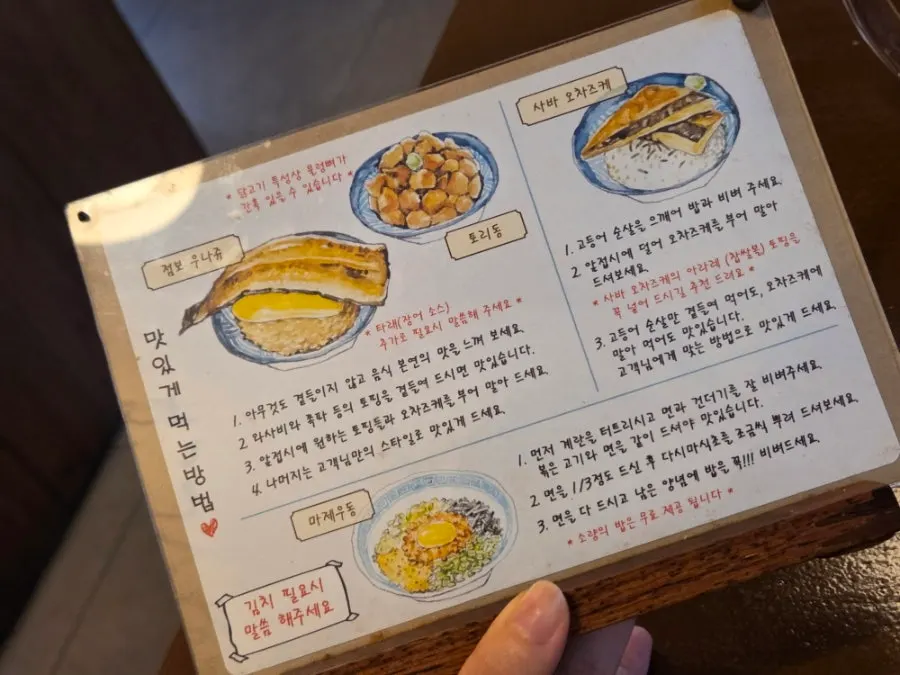 맛있게 먹는 방법
* 닭고기 특성상 물렁뼈가
간혹 있을 수 있습니다 *
토리동
점보 우나쥬
* 타래(장어 소스)
추가로 필요시 말씀해 주세요 *
1. 아무것도 곁들이지 않고 음식 본연의 맛을 느껴 보세요.
2 와사비와 쪽파 등의 토핑을 곁들여 드시면 맛있습니다.
3. 앞접시에 원하는 토핑들과 오차즈케를 부어 말아 드세요.
4. 나머지는 고객님만의 스타일로 맛있게 드세요.
사바 오차즈케
1. 고등어 순살을 으깨어 밥과 비벼 주세요.
2 앞접시에 덜어 오차즈케를 부어 말아
드셔보세요.
* 사바 오차즈케의 아라레 (찹쌀볼) 토핑을
꼭 넣어 드시길 추천 드려요 *
3. 고등어 순살만 곁들여 먹어도, 오차즈케에
말아 먹어도 맛있습니다.
고객님에게 맞는 방법으로 맛있게 드세요.
마제우동
1. 먼저 계란을 터트리시고 면과 건더기를 잘 비벼주세요.
볶은 고기와 면을 같이 드셔야 맛있습니다.
2 면을 1/3정도 드신 후 다시마식초를 조금씩 뿌려 드셔보세요.
3. 면을 다 드시고 남은 양념에 밥을 꼭!!! 비벼드세요.
* 소량의 밥은 무료 제공 됩니다 *
김치 필요시
말씀 해주세요